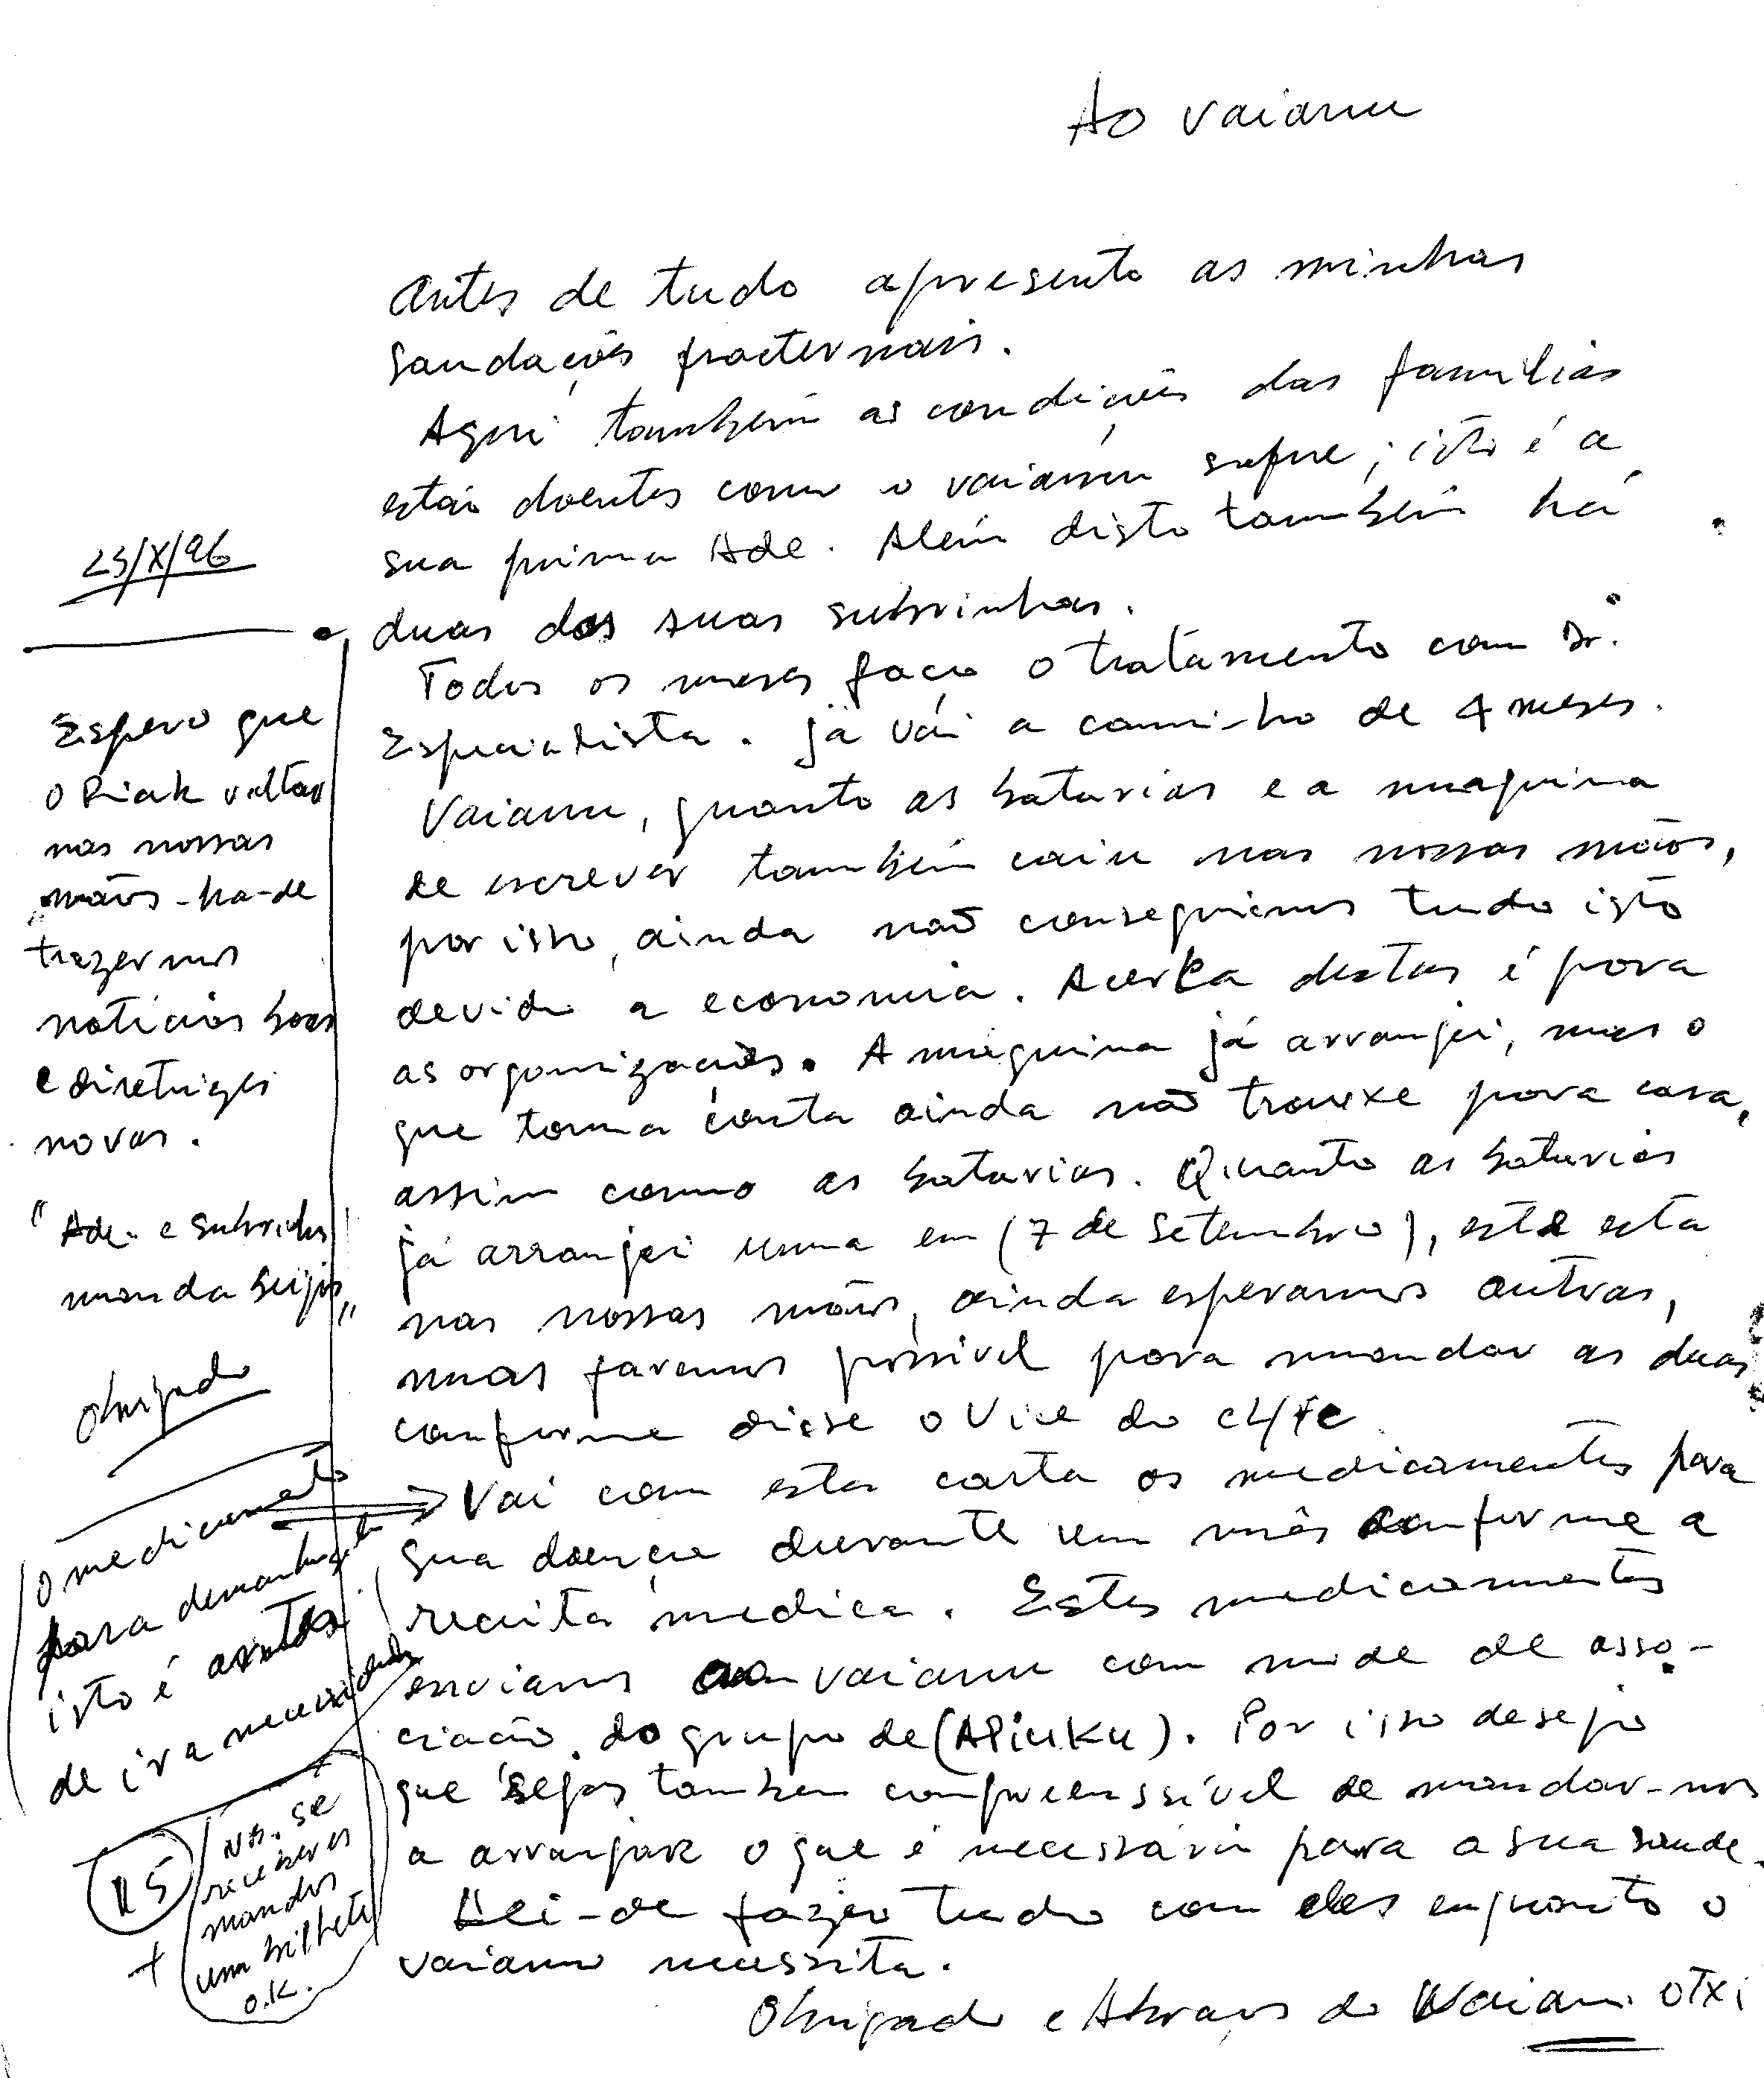 Ao Vaianu
Antes de tudo apresento as minhas
saudações fracternais.
Aqui também as condições das famílias
estão doentes como o vaianu sofre, isto é a
sua prima Ade. Além disto também há
duas das suas subrinhas.
Todos os meses faço o tratamento com Dr.
Especialista. já vai a caminho de 4 meses.
Vaianu, quanto as batarias e a maquina
de escrever também caiu nas nossas mãos,
por isso, ainda não conseguimos tudo isto
devido a economia. Acerca destas é para
as organizações. A maquina já arranjei, mas o
que toma conta ainda não trouxe para casa,
assim como as batarias. Quanto as batarias
já arranjei uma em (7 de Setembro), esta esta
nas nossas mãos, ainda esperamos outras,
mas faremos possivel para mandar as duas
conforme disse o Vice do
Vai com esta carta os medicamentos para
sua doença durante um mês conforme a
receita medica. Estes medicamentos
enviamos ao vaianu com mode de asso-
ciação do grupo de (APiuKu). Por isso desejo
que sejas tambem compreenssível de mandar-nos
a arranjar o que é necessário para a sua saude.
Hei-de fazer tudo com eles enquanto o
vaianu necessita.
Obrigado e Abraços do Vaianu OTxi
23/X/96
Espero que
o Riak voltar
nas nossas
mãos - ha-de
trazer-nos
notícias boas
e diretrizes
novas.
"Ade. e subrinhas
manda beijos"
Obrigado
O medicamento
para
isto é antes
de ir a necessidade
NB. se
receberes
mandas
um bilhete
O.K.